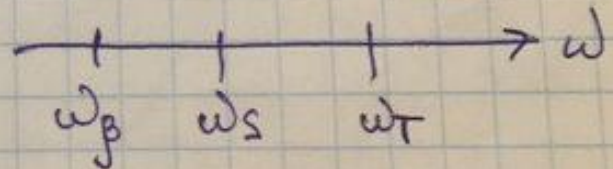 ω
ω_β ω_S ω_T